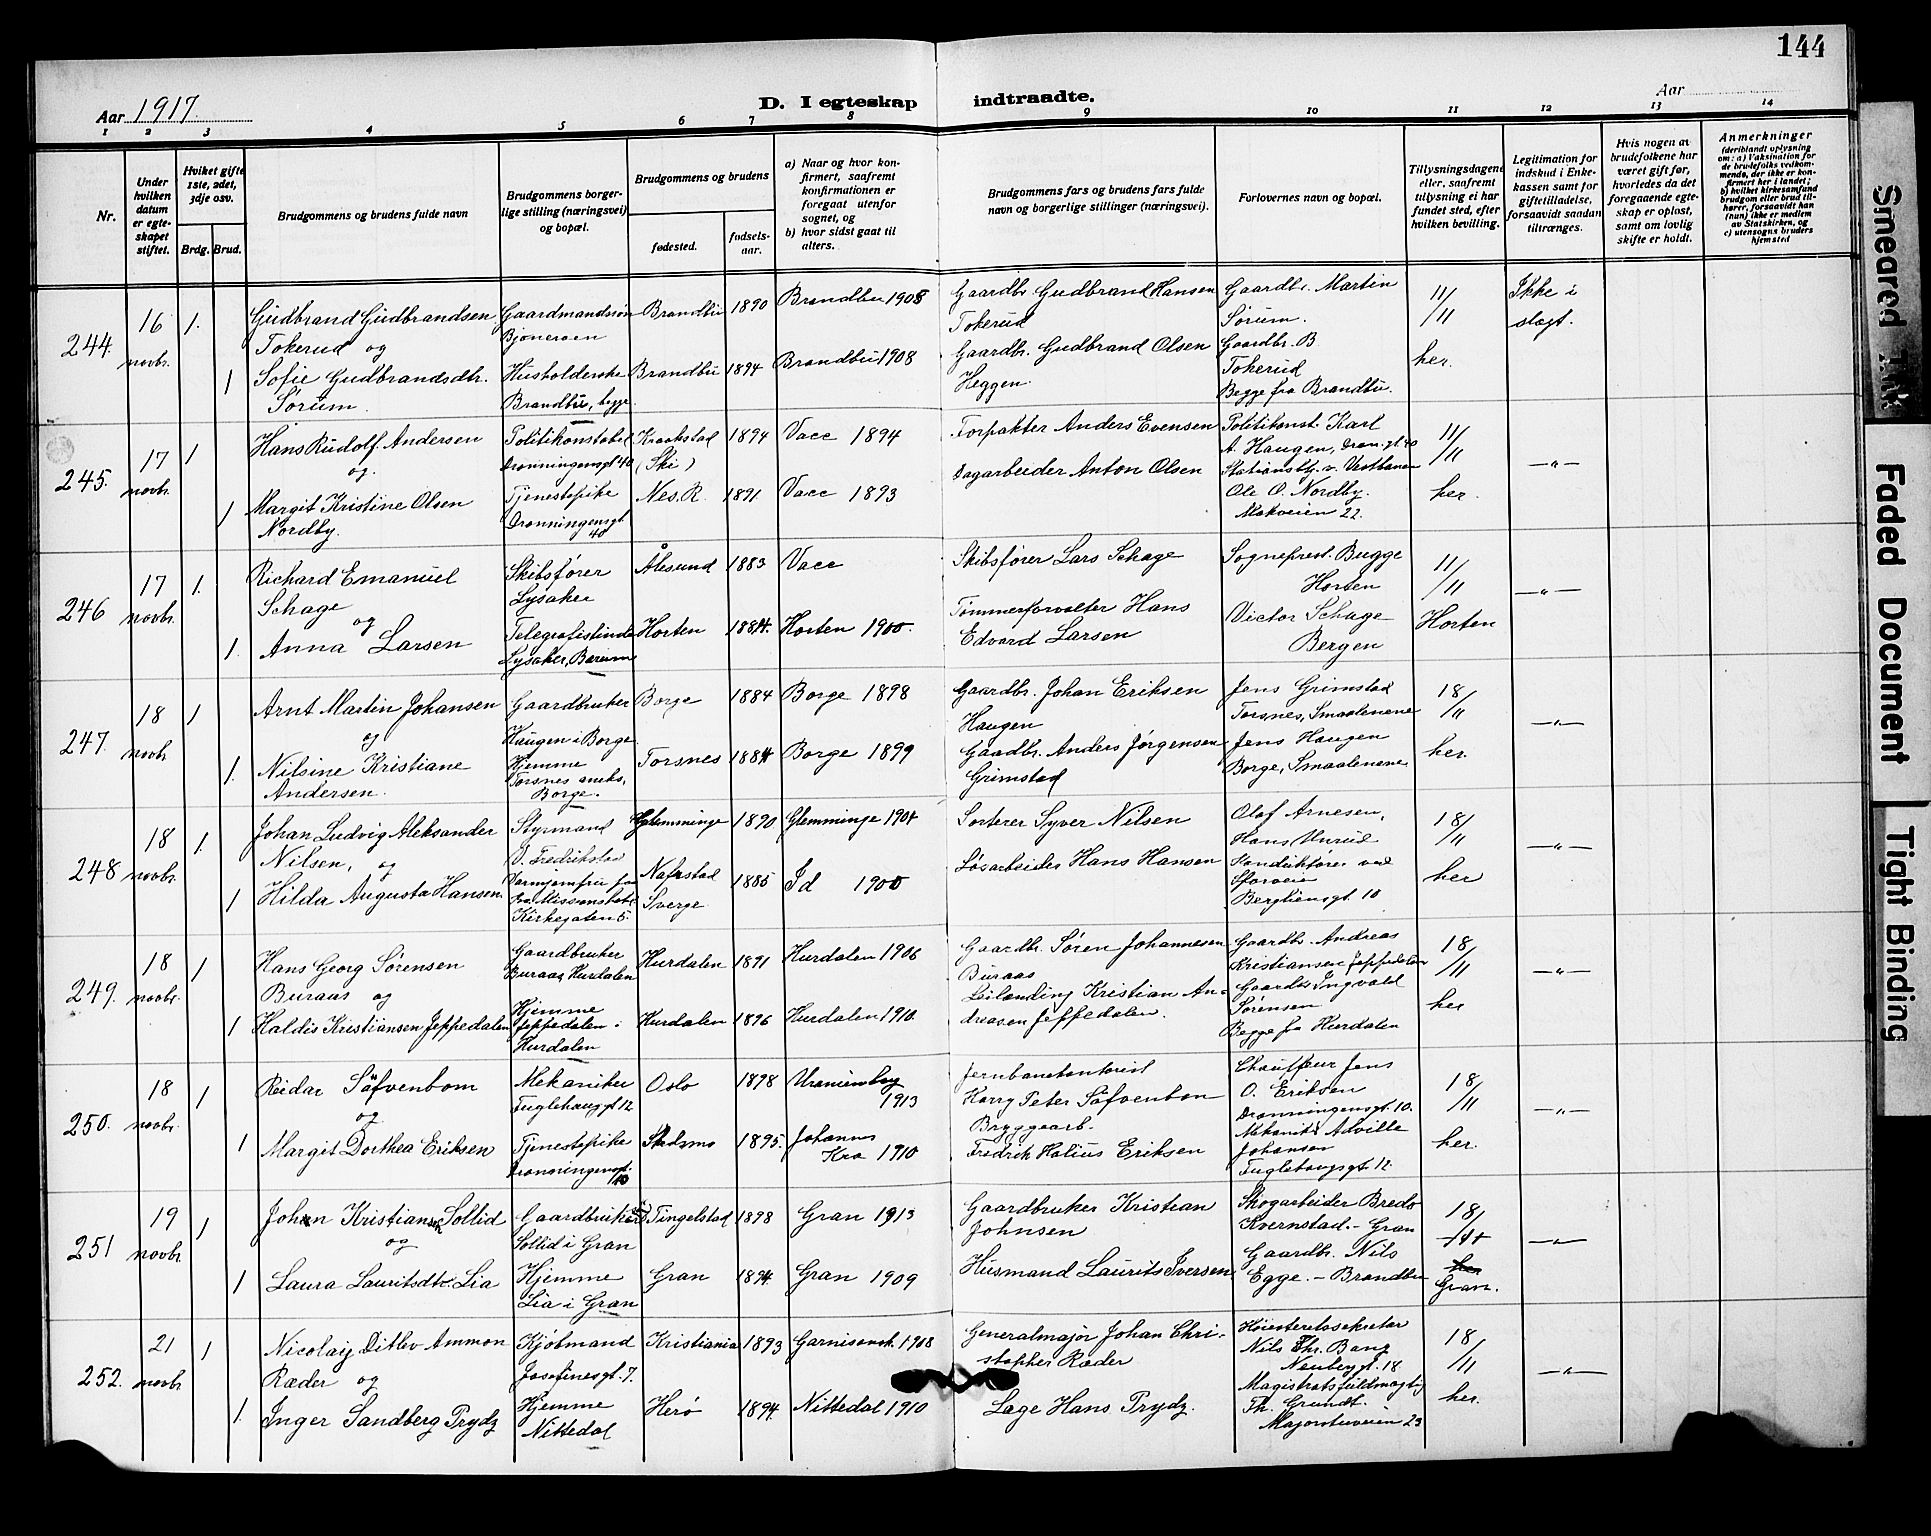 144
Aar 1917.
D. I egteskap indtraadte.
Aar
1 2 3 4 5 6 7 8 9 10 11 12 13 14
Nr.
Under hvilken datum er egteskapet stiftet.
Hvilket gifte 1ste, 2det, 3dje osv.
Brdg. Brud.
Brudgommens og brudens fulde navn
Brudgommens borgerlige stilling (næringsvei) og bopæl.
Brudgommens og brudens
fødested.
fødselsaar.
a) Naar og hvor konfirmert, saafremt konfirmationen er foregaat utenfor sognet, og
b) hvor sidst gaat til alters.
Brudgommens fars og brudens fars fulde navn og borgerlige stillinger (næringsvei).
Forlovernes navn og bopæl.
Tillysningsdagene eller, saafremt tillysning ei har fundet sted, efter hvilken bevilling.
Legitimation for indskud i Enkekassen samt for giftetilladelse, forsaavidt saadan tiltrænges.
Hvis nogen av brudefolkene har været gift før, hvorledes da det foregaaende egteskap er opløst, samt om lovlig skifte er holdt.
Anmerkninger
(deriblandt oplysning om: a) Vaksination for de brudefolks vedkommende, der ikke er konfirmert her i landet; b) hvilket kirkesamfund brudgom eller brud tilhører, forsaavidt han (hun) ikke er medlem av Statskirken, og c) utensogns bruders hjemsted
244. 16 novbr. 1. Gudbrand Gudbrandsen
Tokerud og
Gaardmandssøn
Bjoneroen
Brandbu 1890 Brandbu 1905
Gaardbr. Gudbrand Hansen
Tokerud
Gaardbr. Martin
Sørum.
11/11
Ikke i
slegt.
1 Sofie Gudbrandsdtr.
Sørum.
Husholderske
Brandbu, begge
Brandbu 1894 Brandbu 1908
Gaardbr. Gudbrand Olsen
Heggen.
Gaardbr. B.
Tokerud
Begge fra Brandbu.
her.
245. 17 novbr. 1 Hans Rudolf Andersen
og
Politikonstabel
Dronningensgt 40
Kraakstad
(Ski)
1894 Vacc 1894
Forpakter Anders Evensen
Politikonst. Karl
A. Haugen, Dron.gt 40
11/11
-"-
1 Margit Kristine Olsen
Nordby.
Tjenestepike
Dronningensgt.
40
Nes. R. 1891. Vacc 1893
Dagarbeider Anton Olsen
Stationsbtj. v. Vestbanen
Ole O. Nordby.
Makveien 22.
her.
246 17 novbr. 1. Richard Emanuel
Schage
og
Skibsfører
Lysaker
Ålesund 1883 Vacc
Skibsfører Lars Schage
Sogneprest. Bugge
Horten
11/11
-"-
1. Anna Larsen
Telegrafistinde
Lysaker, Bærum
Horten 1884. Horten 1900.
Tømmerforvalter Hans
Edvard Larsen
Victor Schage
Bergen
Horten
247. 18 novbr. 1 Arnt Martin Johansen
og
Gaardbruker
Haugen i Borge
Borge 1884 Borge 1898
Gaardbr. Johan Eriksen
Haugen
Jens Grimstad
Torsnes, Smaalenene
18/11
-"-
1. Nilsine Kristiane
Andersen.
Hjemme
Torsnes aneks,
Borge.
Torsnes 1884 Borge 1899
Gaadbr. Anders Jørgensen
Grimstad
Jens Haugen
Borge, Smaalenene
her.
248 18 novbr. 1. Johan Ludvig Aleksander
Nilsen, og
Styrmand
Fredrikstad
Glemminge 1890 Glemminge 1904
Sorterer Syver Nilsen
Olaf Arnesen,
18/11
-"-
1 Hilda Augusta Hansen
Kirkegaten 5.
Sverge
1885 Id 1900
Løsarbeider Hans Hansen
Konduktører ved
Sporveien
Bergliensgt. 10
her
249. 18 novbr. 1 Hans Georg Sørensen
Buraas og
Gaardbruker
Buraas Hurdalen
Hurdalen 1891 Hurdalen 1906
Gaardbr. Søren Johannesen
Buraas
Gaardb. Andreas
Kristiansen Jeppedalen
18/11
-"-
1 Haldis Kristiansen Jeppedalen
Hjemme
Jeppedalen i
Hurdalen
Hurdalen 1896 Hurdalen 1910.
Leilænding Kristian Andreasen Jeppedalen.
Gaardb. Ingvald
Sørensen
Begge fra Hurdalen
her
250. 18 novbr. 1 Reidar Säfvenbom
og
Mekaniker
Fuglehaugt 12
Oslo 1898 Uranienborg
1913
Jernbanekontorist
Harry Peter Säfvenbom
Chauffeur Jens
O. Eriksen
Dronningensgt. 10.
18/11
-"-
1 Margit Dorthea Eriksen
Tjenestepike
Dronningensgt.
10
Skedsmo 1895. Johannes
Kra 1910
Bryggearb.
Fredrik Halius Eriksen
Mekanik. Adville
Johansen
Fuglehaugsgt. 12.
her.
251 19 novbr 1 Johan Kristiansen Sollid
og
Gaardbruker
Sollid i Gran
Tingelstad 1898 Gran 1913
Gaardbruker Kristian
Johnsen
Skogarbeider Bredo
Kvernstad. - Gran
18/11
-"-
1 Laura Lauritsdtr. Lia
Hjemme
Lia i Gran
Gran 1894. Gran 1909
Husmand Laurits Iversen
Gaardbr. Nils
Egge. - Brandbu
her
Gran.
252. 21 novbr 1 Nicolaij Ditlev Ammon
Ræder og
Kjøbmand
Josefinesgt. 7.
Kristiania 1893 Garnisonsk. 1908
Generalmajor Johan Christopher Ræder
Høiesteretssekretær
Nils Chr. Bang
Neubergt. 18
18/11
-"-
1. Inger Sandberg Prydz
Hjemme
Nittedal
Herø 1894. Nittedal 1910
Læge Hans Prydz.
Magistratsfuldmægtig
Th. Grundt.
Majorstuveien 23
her.
Smeared Ink
Faded Document
Tight Binding